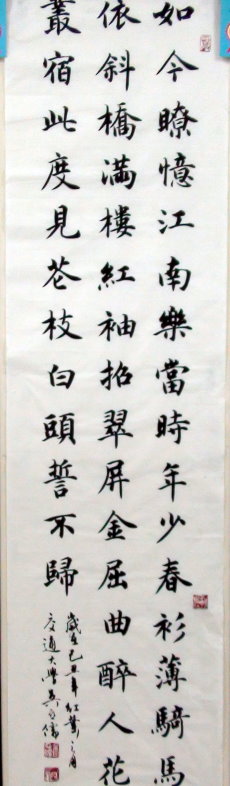 如今瞭憶江南樂當時年少春衫薄騎馬
依斜橋滿樓紅袖招翠屏金屈曲醉人花
叢宿此度見花枝白頭誓不歸
歲在己丑年紅葉之月
交通大學